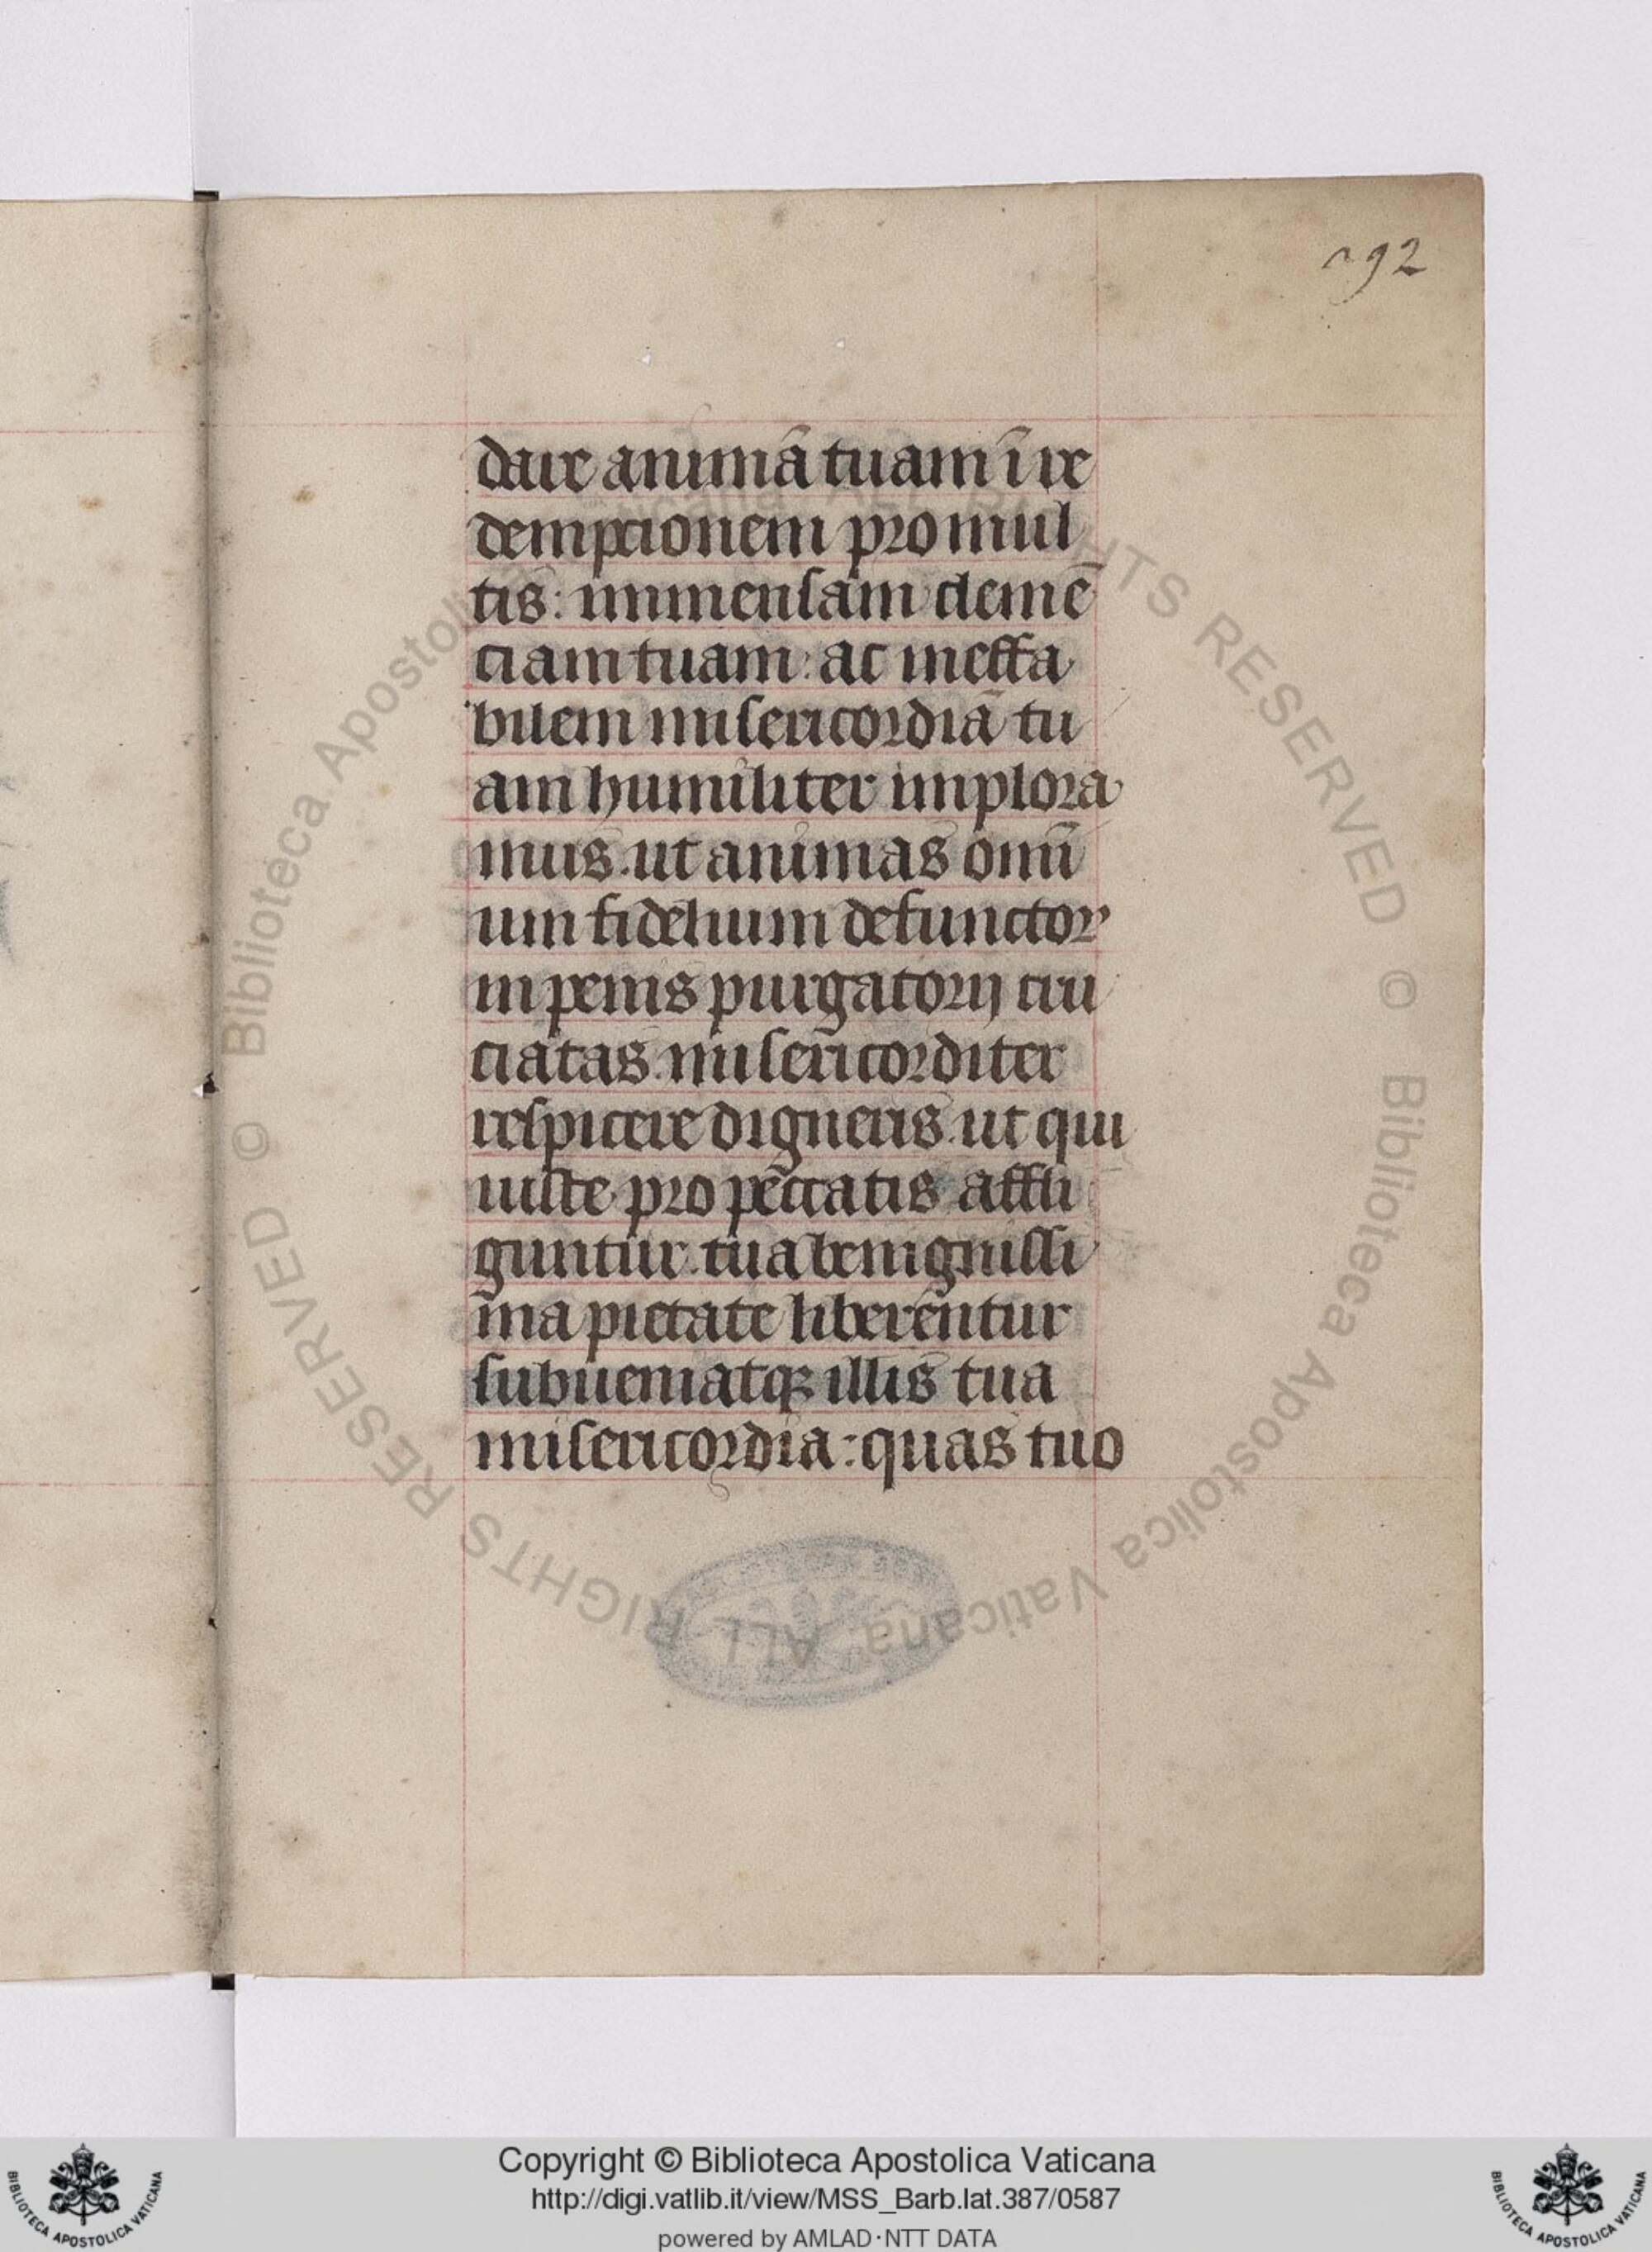 292
dare animā tuam ī re
dempcionem pro mul
tis: immensam clemē
ciam tuam: ac ineffa
bilem misericordiā tu
am humiliter implora
mus. ut animas omī
um fidelium defunctoꝝ
in penis purgatorij cru
ciatas. misericorditer
respicere digneris. ut qui
iuste pro peccatis affli
guntur. tua benignissi
ma pietate liberentur
subueniatqꝫ illis tua
misericordia: quas tuo
© Biblioteca Apostolica Vaticana ALL RIGHTS RESERVED © Biblioteca Apostolica Vaticana ALL RIGHTS RESERVED
Copyright © Biblioteca Apostolica Vaticana
http://digi.vatlib.it/view/MSS_Barb.lat.387/0587
powered by AMLAD·NTT DATA
BIBLIOTECA APOSTOLICA VATICANA
BIBLIOTECA APOSTOLICA VATICANA